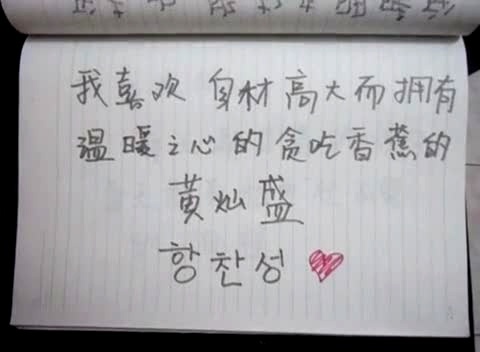 我喜欢 身材高大而拥有
温暖之心的贪吃香蕉的
黄灿盛
황찬성